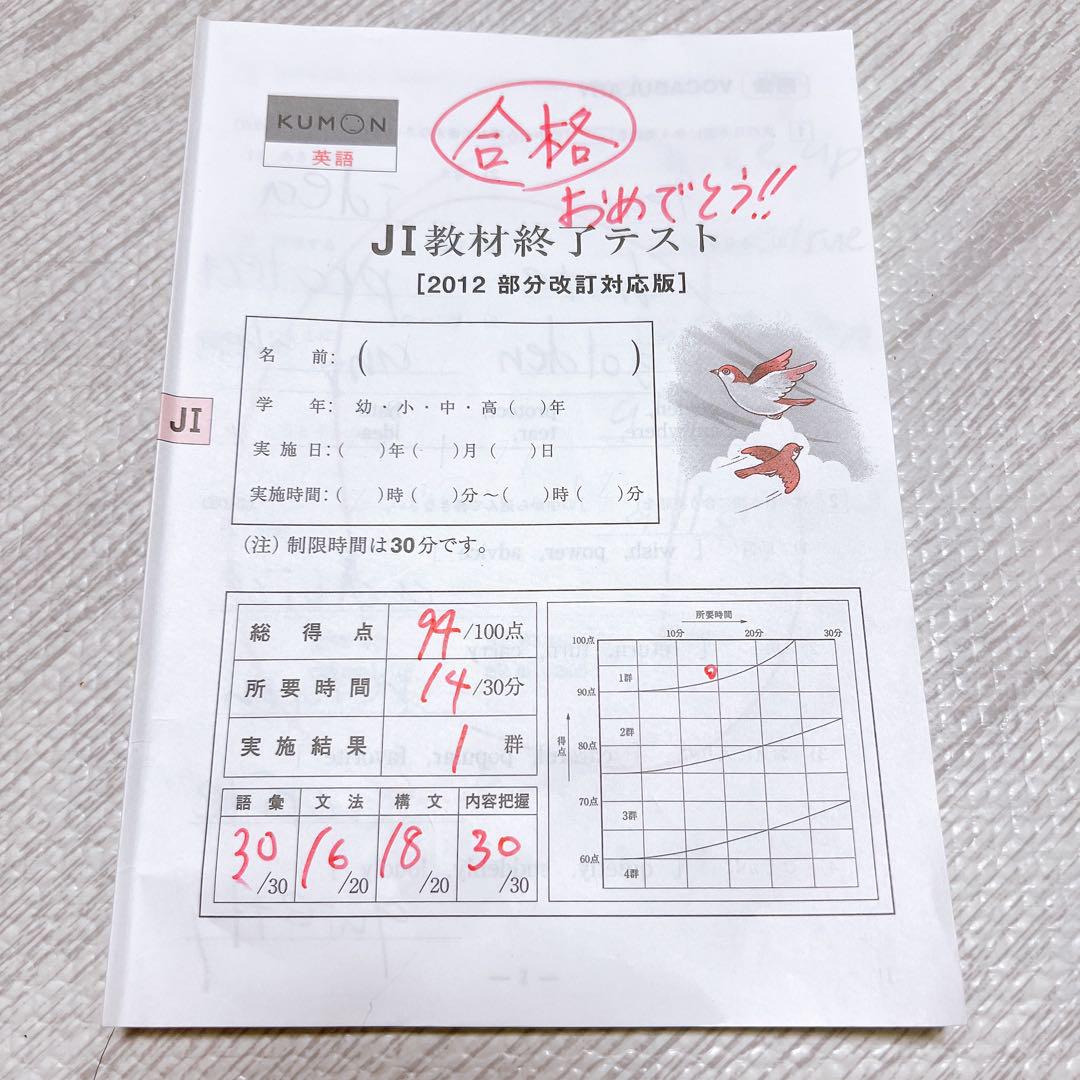 KUMON
英語
合格
おめでとう!!
JI教材終了テスト
[2012 部分改訂対応版]
名 前: ( )
学 年: 幼・小・中・高( )年
実施日:( )年( )月( )日
JI
実施時間:( )時( )分〜( )時( )分
(注) 制限時間は30分です。
総得点 94/100点
所要時間 14/30分
実施結果 1 群
語彙 文法 構文 内容把握
30/30 16/20 18/20 30/30
所要時間
10分 20分 30分
100点
1群
90点
2群
得点
80点
70点
3群
60点
4群